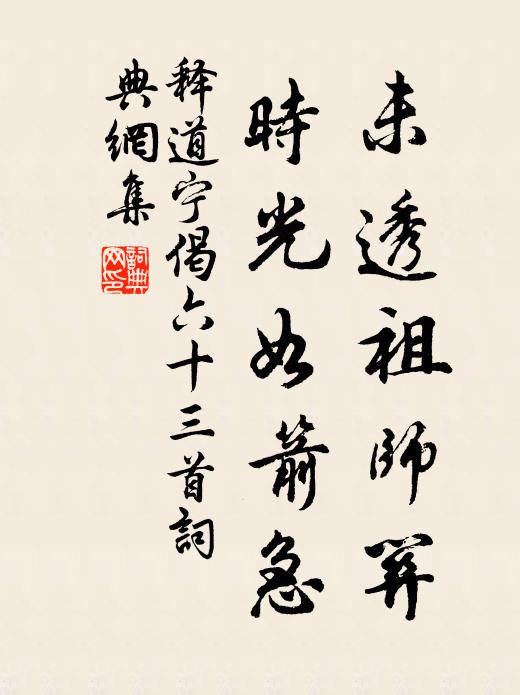 未透祖師關
時光如箭急
释道宁偈六十三首詞
典網集
詞典
网印